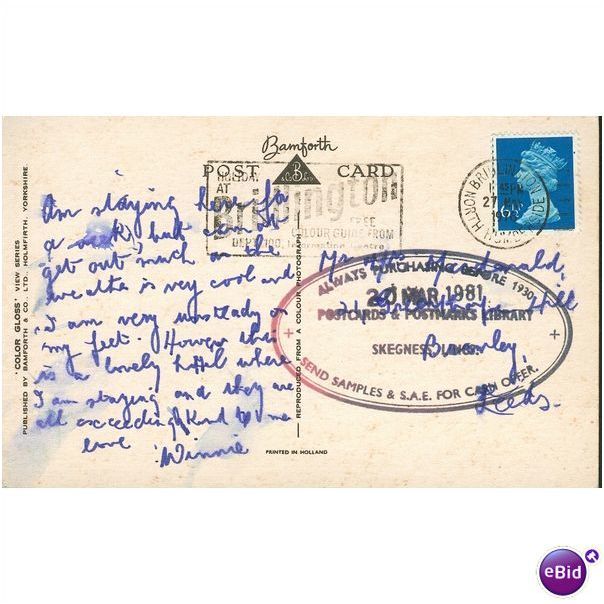 Bamforth
POST CARD
HOLIDAY
AT
Bridlington
FREE
COLOUR GUIDE FROM
DEPT 100, Information Centre
BRIDLINGTON
NORTH HUMBERSIDE
1.45PM
27 MAR
Am staying here for
a week, but can not
get out much as the
weather is very cold and
I am very unsteady on
my feet. However this
is a lovely hotel where
I am staying and they are
all exceedingly kind to me
love Winnie
Mr
Hill
Bramley,
Leeds.
ALWAYS PURCHASING BEFORE 1930
20 MAR 1981
POSTCARDS & POSTMARKS LIBRARY
SKEGNESS, LINCS.
SEND SAMPLES & S.A.E. FOR CASH OFFER.
'COLOR GLOSS' VIEW SERIES
PUBLISHED BY BAMFORTH & CO., LTD. HOLMFIRTH, YORKSHIRE.
REPRODUCED FROM A COLOUR PHOTOGRAPH
PRINTED IN HOLLAND
eBid